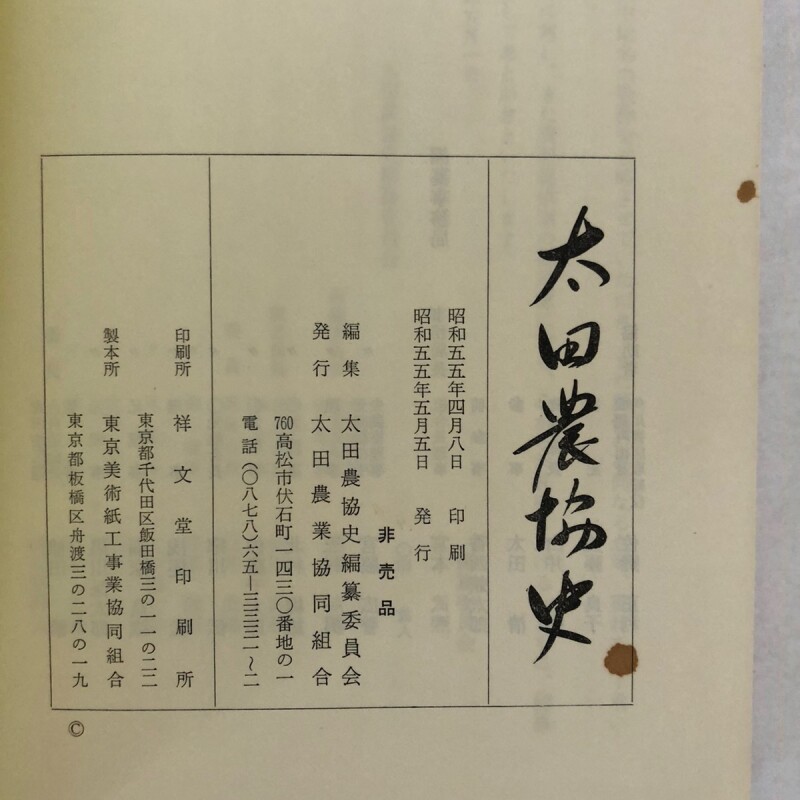 太田農協史
昭和五五年四月八日　印刷
昭和五五年五月五日　発行
非売品
編集　太田農協史編纂委員会
発行　太田農業協同組合
760高松市伏石町一四三〇番地の一
電話(〇八七八)六五―三三三一〜二
印刷所　祥文堂印刷所
東京都千代田区飯田橋三の一一の二二
製本所　東京美術紙工事業協同組合
東京都板橋区舟渡三の二八の一九
©